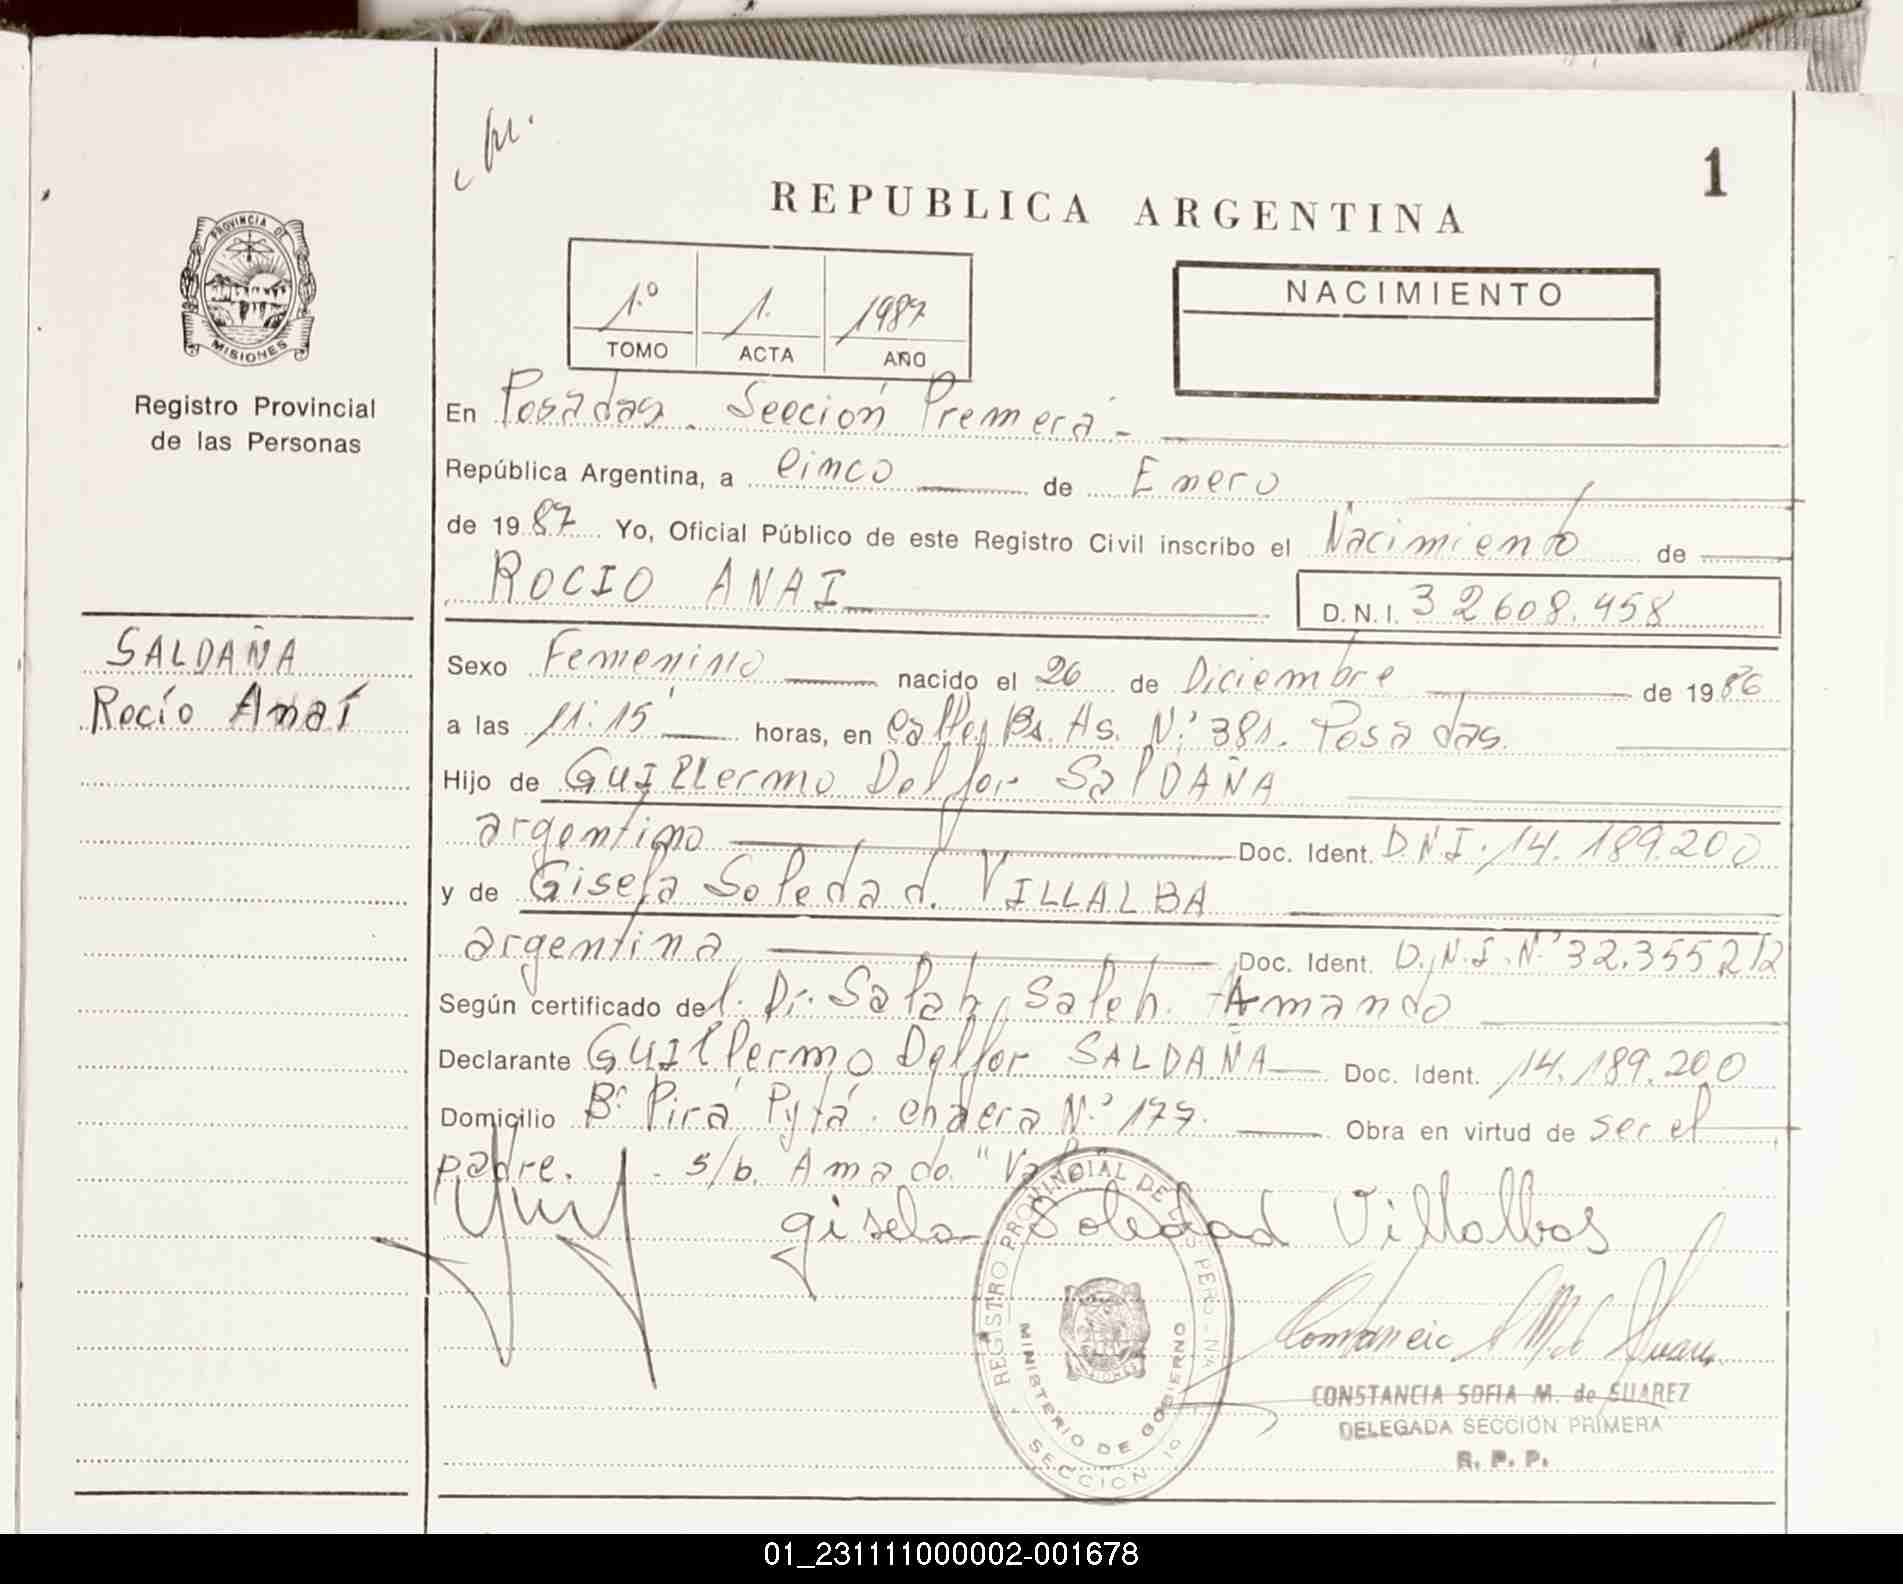 1
REPUBLICA ARGENTINA
PROVINCIA DE
MISIONES
Registro Provincial
de las Personas
1.º 1. 1987
TOMO ACTA AÑO
NACIMIENTO
En Posadas. Sección Premera -
República Argentina, a cinco de Enero
de 1987 Yo, Oficial Público de este Registro Civil inscribo el Nacimiento de
ROCIO ANAI
D.N.I. 32608.458
SALDAÑA
Rocío Anaí
Sexo Femenino nacido el 26 de Diciembre de 1986
a las 11:15 horas, en calle Bs. As. N.º 381. Posadas.
Hijo de GUILLermo Delfor SalDAÑA
argentino Doc. Ident. D.N.I. 14.189.200
y de Gisela Soledad. VILLALBA
argentina Doc. Ident. D.N.I.N.º 32.355.212
Según certificado del. Dr. Salah Saleh. Amando
Declarante GUILlermo Delfor SALDAÑA Doc. Ident. 14.189.200
Domicilio Bº Pirá Pytá. chacra N.º 177. Obra en virtud de ser el
padre. - s/b. Amado. "Vale"
gisela Soledad Villalba
REGISTRO PROVINCIAL DE LAS PERSONAS
MINISTERIO DE GOBIERNO
SECCION 1º
CONSTANCIA SOFIA M. de SUAREZ
DELEGADA SECCION PRIMERA
R. P. P.
01_231111000002-001678